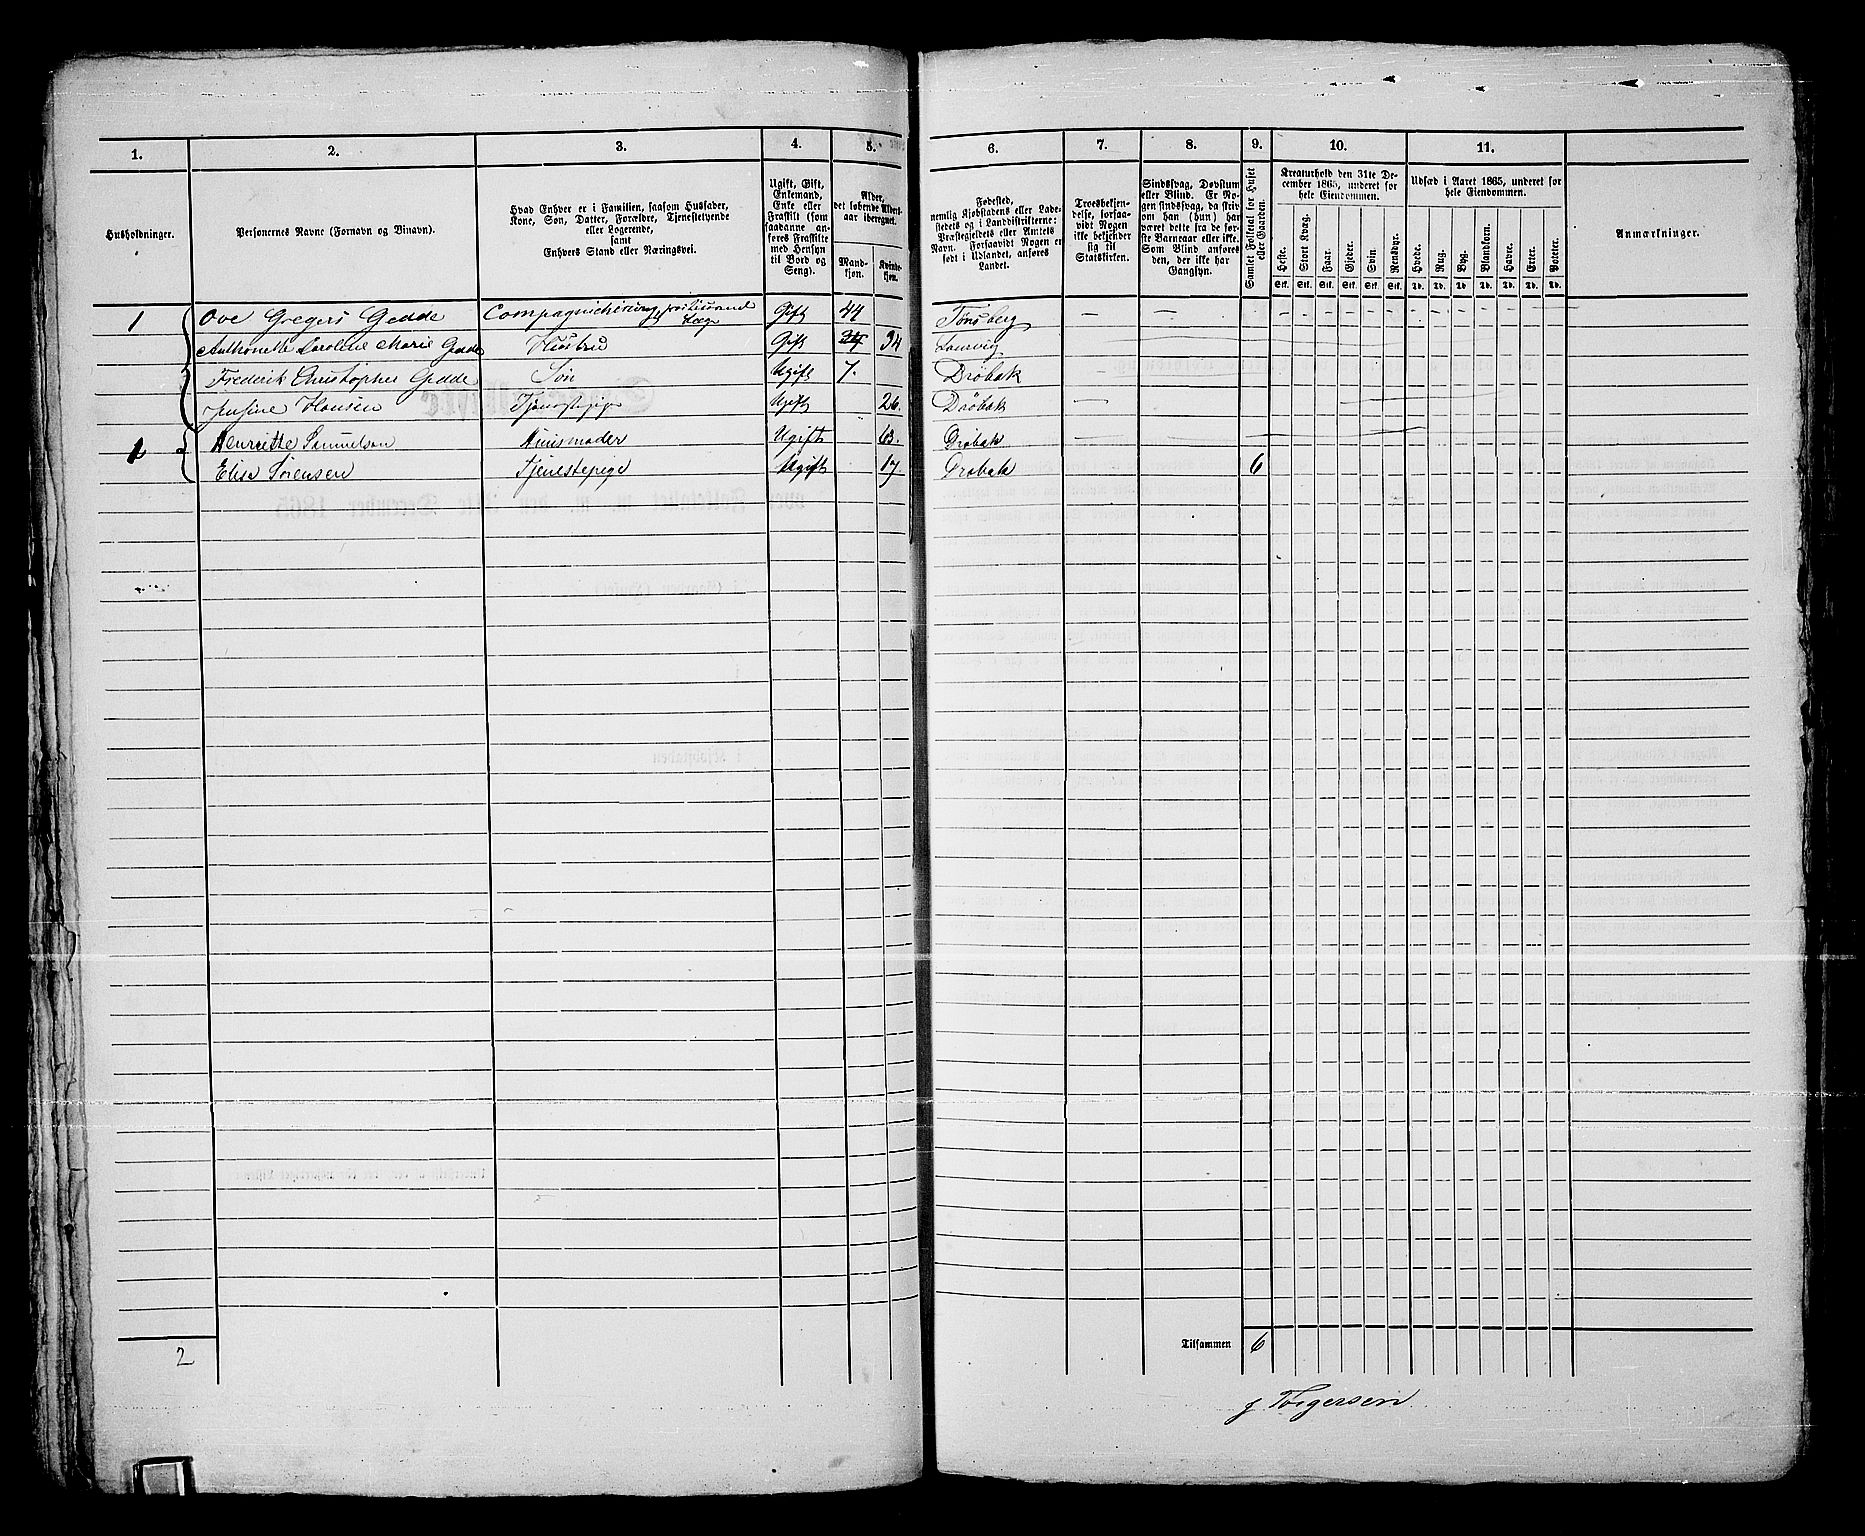 1. 2. 3. 4. 5. 6. 7. 8. 9. 10. 11.
Husholdninger.
Personernes Navne (Fornavn og Vinavn).
Hvad Enhver er i Familien, saasom Husfader,
Kone, Søn, Datter, Forældre, Tjenestetyende
eller Logerende,
samt
Enhvers Stand eller Næringsvei.
Ugift, Gift,
Enkemand,
Enke eller
Fraskilt (som
saadanne an-
føres Fraskilte
med Hensyn
til Bord og
Seng).
Alder,
det løbende Alders-
aar iberegnet.
Mand-
kjøn.
Kvinde-
kjøn.
Fødested,
nemlig Kjøbstadens eller Lade-
stedets og i Landdistrikterne:
Præstegjeldets eller Amtets
Navn. Forsaavidt Nogen er
født i Udlandet, anføres
Landet.
Troesbekjen-
delse, forsaa-
vidt Nogen
ikke bekjender
sig til
Statskirken.
Sindssvag, Døvstum
eller Blind. Er No-
gen sindssvag, da skriv
om han (hun) har
været dette fra de før-
ste Barneaar eller ikke.
Som Blind anføres
den, der ikke har
Gangsyn.
Samlet Folketal for Huset
eller Gaarden.
Kreaturhold den 31te De-
cember 1865, underet for
hele Eiendommen.
Heste. Stort Kvæg. Faar. Gjeder. Svin. Rensdyr.
Stk. Stk. Stk. Stk. Stk. Stk.
Udsæd i Aaret 1865, underet for
hele Eiendommen.
Hvede. Rug. Byg. Blandkorn. Havre. Erter. Poteter.
Td. Td. Td. Td. Td. Td. Td.
Anmærkninger.
1 Ove Gregers Gedde Compagniechirurg, Læge Gift 44 Tønsberg
Anthonette Caroline Marie Gedde Hustru Gift 34 34 Laurvig
Frederik Christopher Gedde Søn Ugift 7. Drøbak
Jensine Hansen Tjenestepige Ugift 26. Drøbak
Henriette Samuelsen Huusmoder Ugift 63. Drøbak
Elise Sørensen Tjenestepige Ugift 17 Drøbak 6
2 Tilsammen 6
J Torgersen